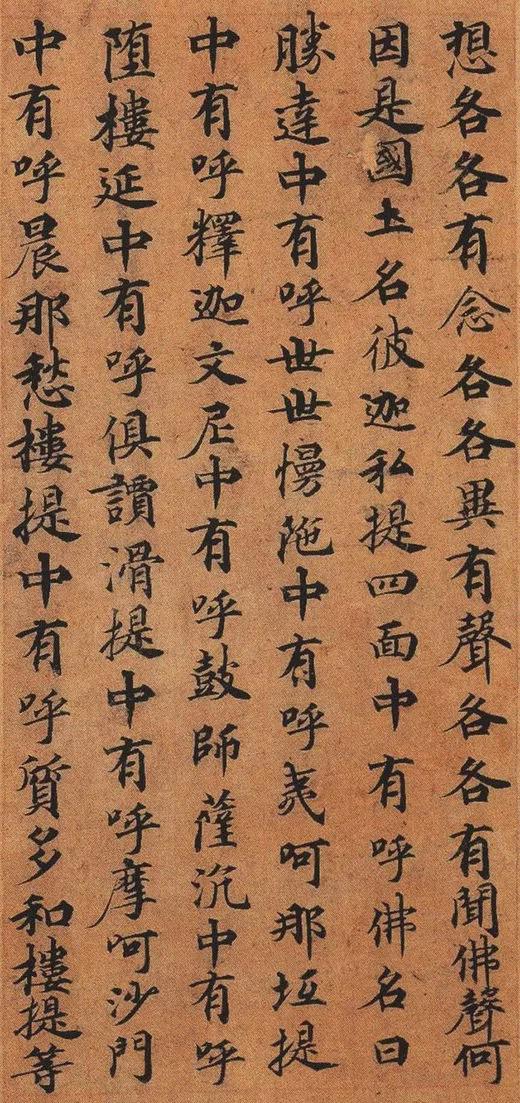 想各各有念各各異有聲各各有聞佛聲何
因是國土名彼迦私提四面中有呼佛名曰
勝達中有呼世世慢陁中有呼夷呵那坻提
中有呼釋迦文尼中有呼鼓師薩沉中有呼
墮樓延中有呼俱譚滑提中有呼摩呵沙門
中有呼晨那愁樓提中有呼質多和樓提等